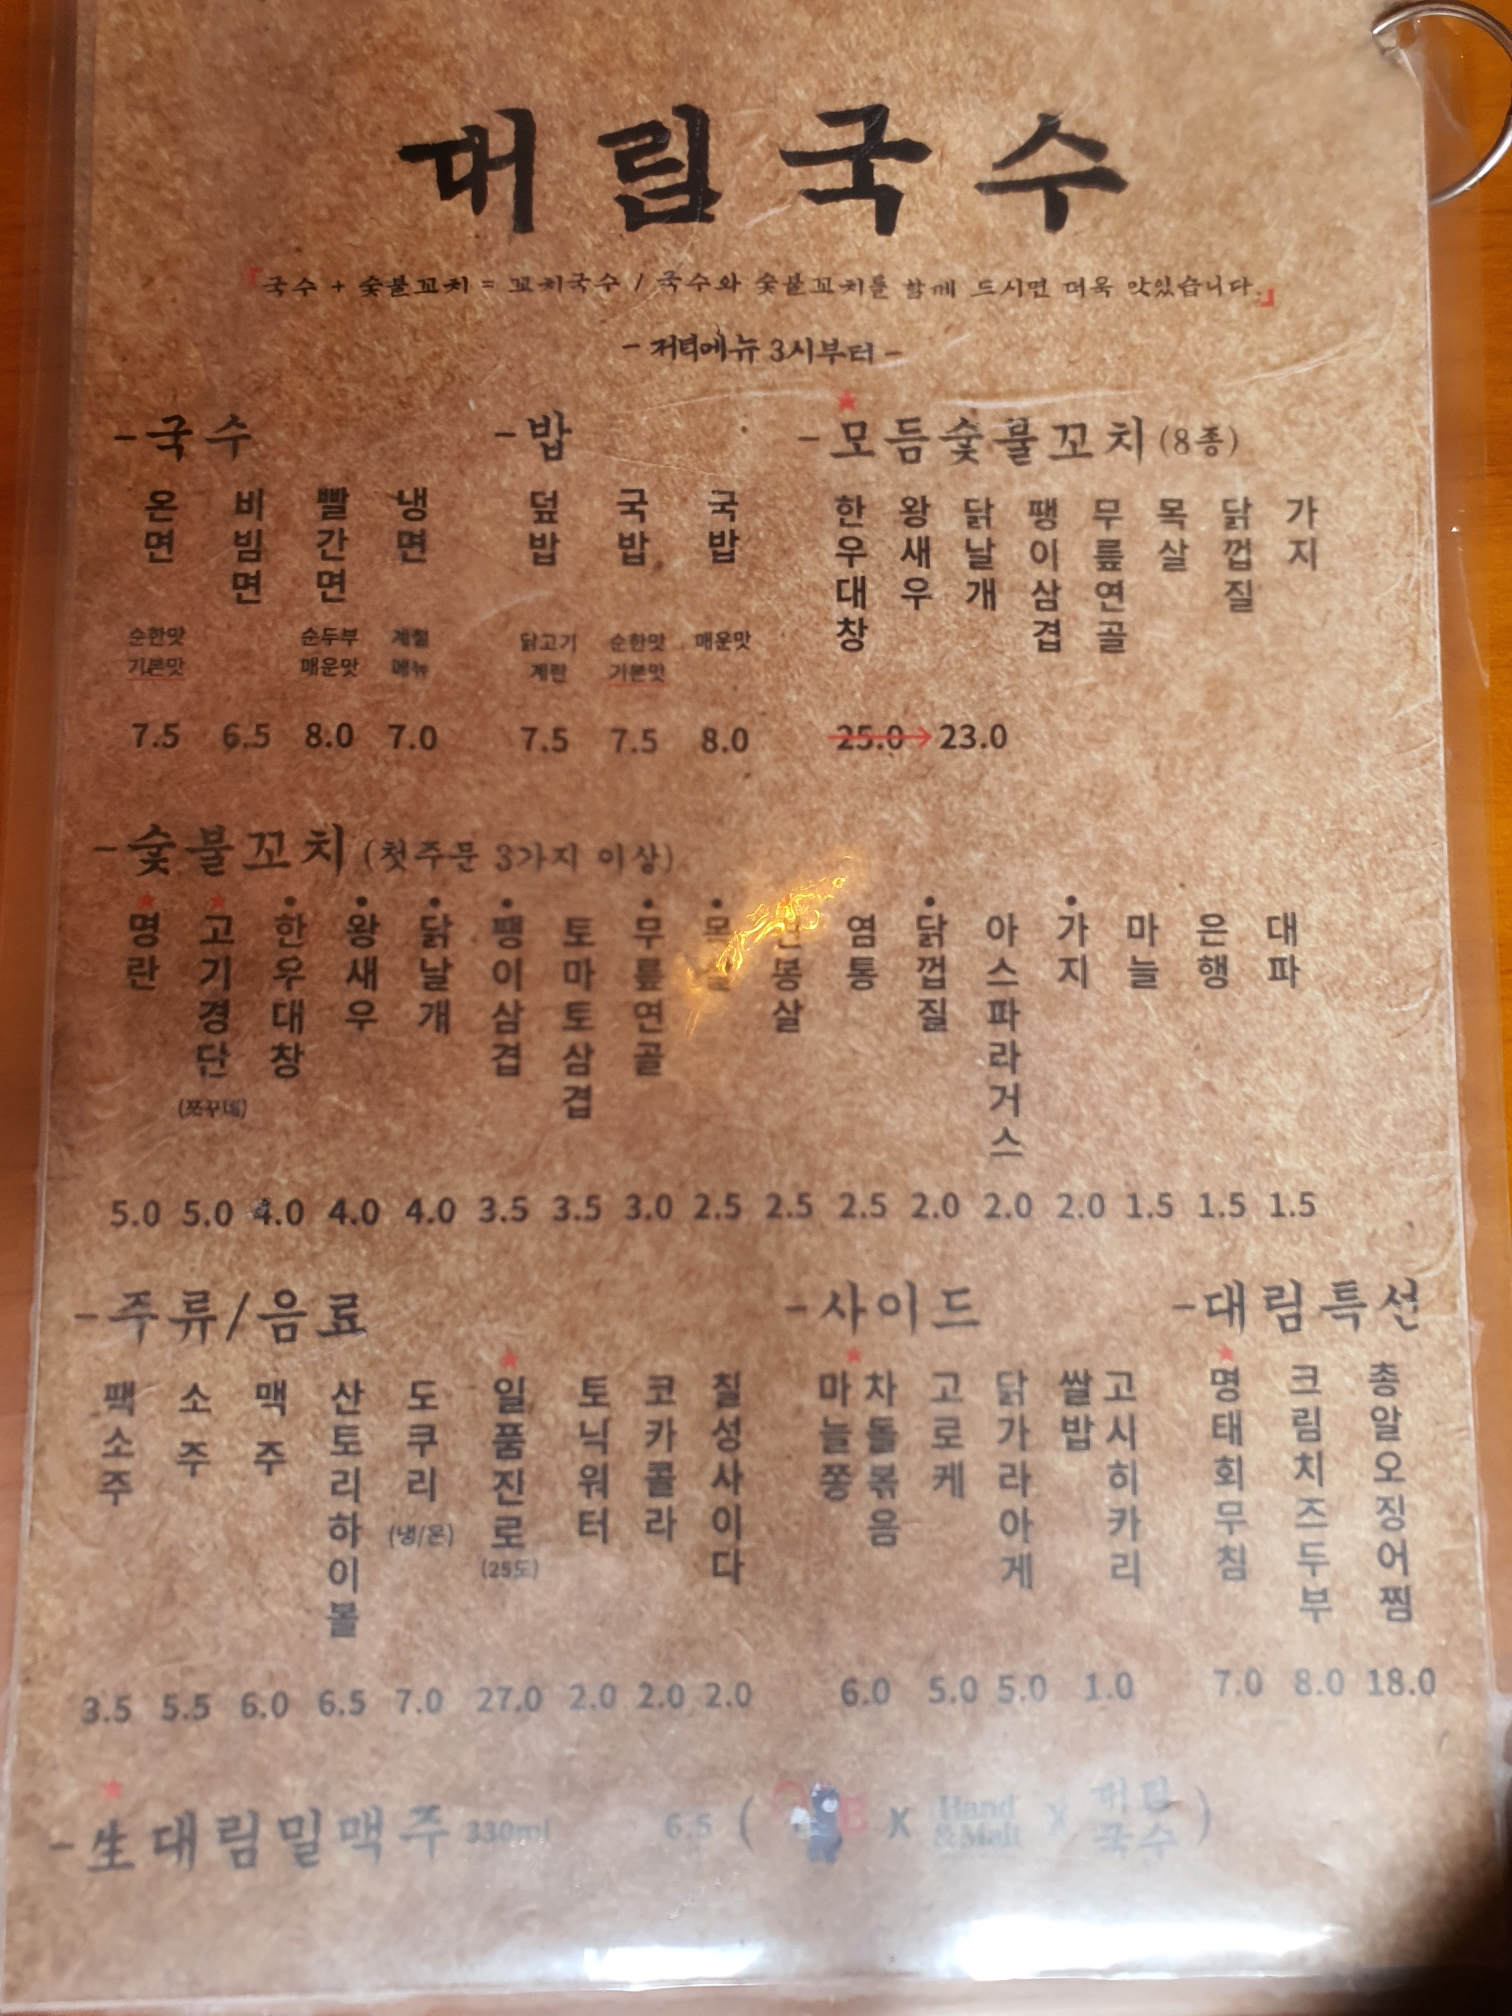 대림국수
『국수 + 숯불꼬치 = 꼬치국수 / 국수와 숯불꼬치를 함께 드시면 더욱 맛있습니다.』
- 저녁메뉴 3시부터 -
-국수
온면
순한맛
기본맛
7.5
비빔면
6.5
빨간면
순두부
매운맛
8.0
냉면
계절
메뉴
7.0
-밥
덮밥
닭고기
계란
7.5
국밥
순한맛
기본맛
7.5
국밥
매운맛
8.0
★
-모듬숯불꼬치(8종)
한우대창
왕새우
닭날개
팽이삼겹
무릎연골
목살
닭껍질
가지
25.0→23.0
-숯불꼬치(첫주문 3가지 이상)
★명란
5.0
★고기경단
(쯔꾸네)
5.0
•한우대창
4.0
•왕새우
4.0
•닭날개
4.0
•팽이삼겹
3.5
토마토삼겹
3.5
•무릎연골
3.0
•목살
2.5
봉살
2.5
염통
2.5
•닭껍질
2.0
아스파라거스
2.0
•가지
2.0
마늘
1.5
은행
1.5
대파
1.5
-주류/음료
팩소주
3.5
소주
5.5
맥주
6.0
산토리하이볼
6.5
도쿠리
(냉/온)
7.0
★일품진로
(25도)
27.0
토닉워터
2.0
코카콜라
2.0
칠성사이다
2.0
-사이드
★
마늘쫑
차돌볶음
6.0
고로케
5.0
닭가라아게
5.0
쌀밥
고시히카리
1.0
-대림특선
★명태회무침
7.0
크림치즈두부
8.0
총알오징어찜
18.0
★
-生대림밀맥주 330ml 6.5 ( X Hand &Malt X 대림국수 )